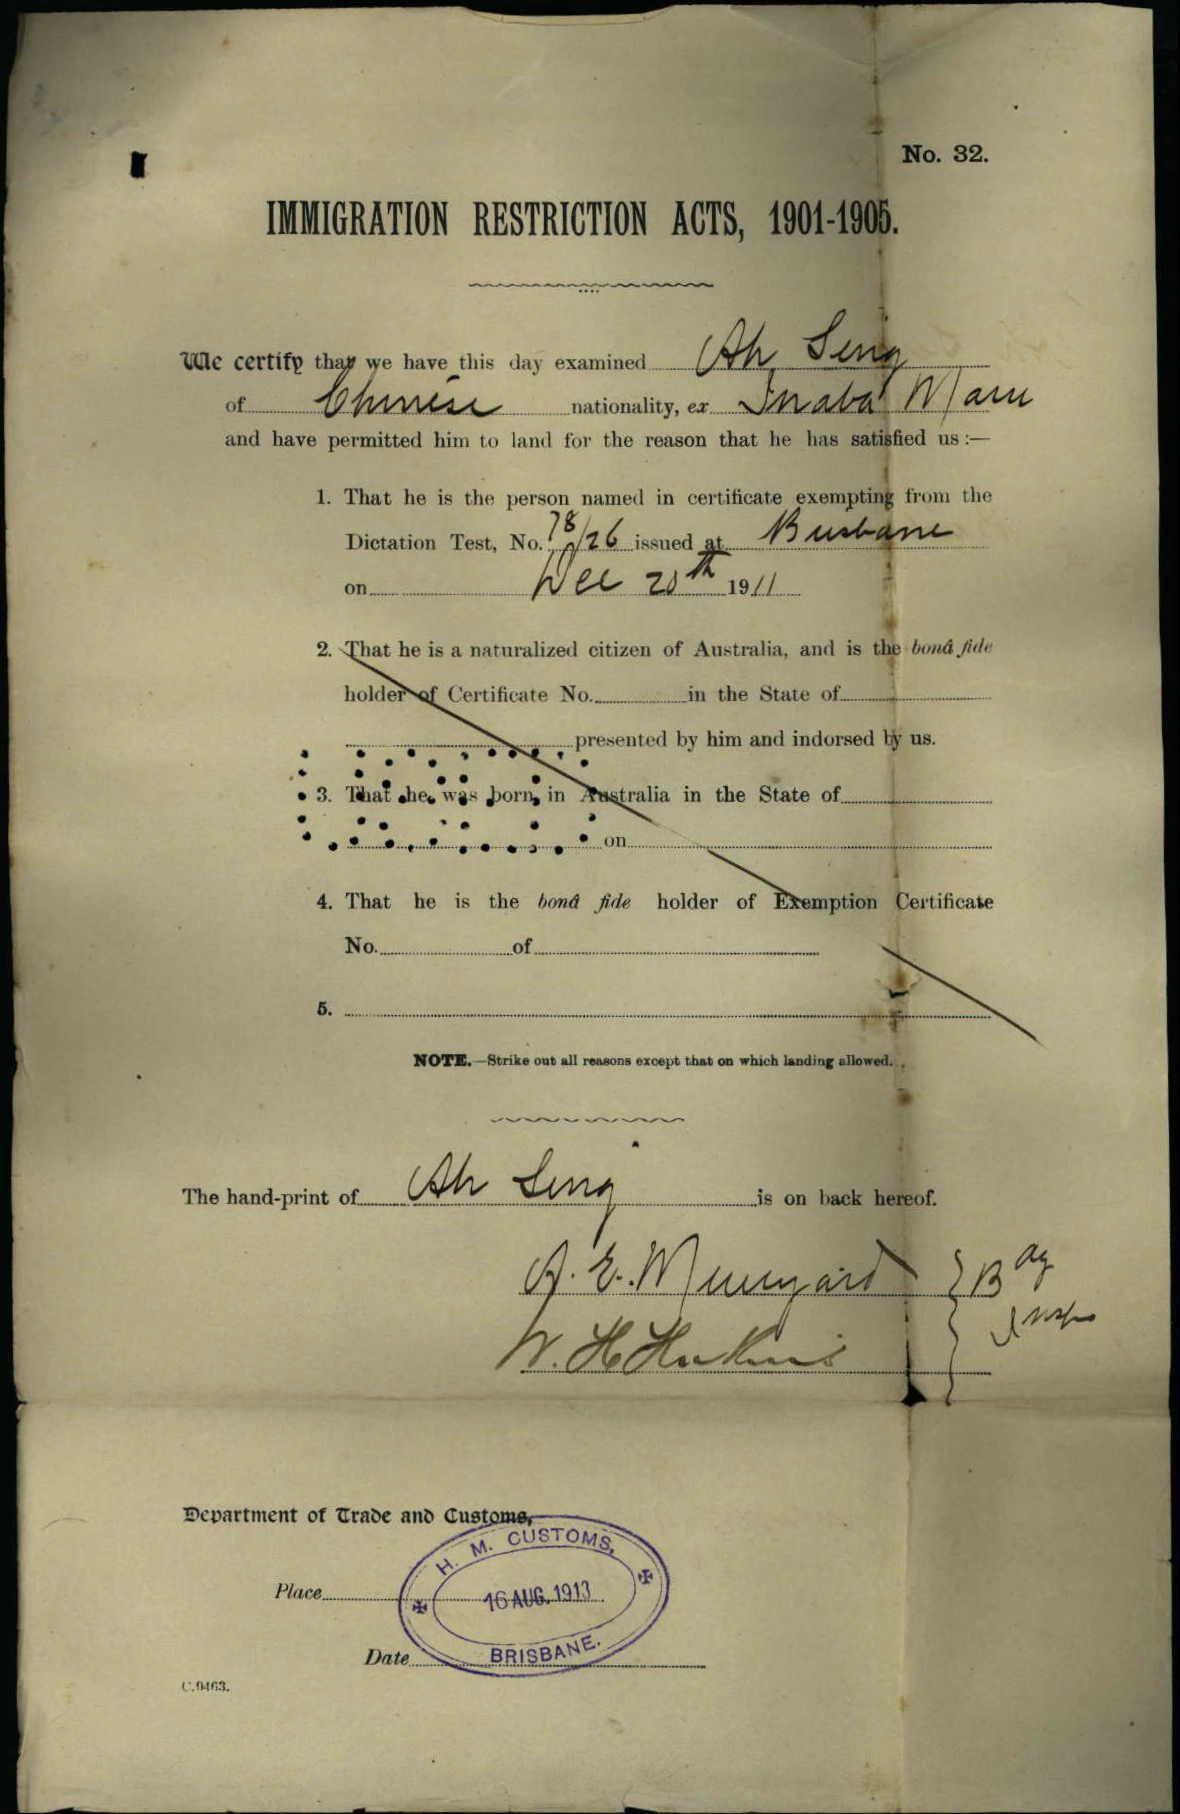 No. 32.
IMMIGRATION RESTRICTION ACTS, 1901-1905.
We certify that we have this day examined Ah Sing
of Chinese nationality, ex Inaba Maru
and have permitted him to land for the reason that he has satisfied us :—
1. That he is the person named in certificate exempting from the
Dictation Test, No. 78/26 issued at Brisbane
on Dec 20th 1911
2. That he is a naturalized citizen of Australia, and is the bonâ fide
holder of Certificate No. in the State of
presented by him and indorsed by us.
3. That he was born in Australia in the State of
on
4. That he is the bonâ fide holder of Exemption Certificate
No. of
5.
NOTE.—Strike out all reasons except that on which landing allowed.
The hand-print of Ah Sing is on back hereof.
A. E.
W. H
Department of Trade and Customs,
H. M. CUSTOMS,
Place
16 AUG. 1913
BRISBANE.
Date
C.9463.